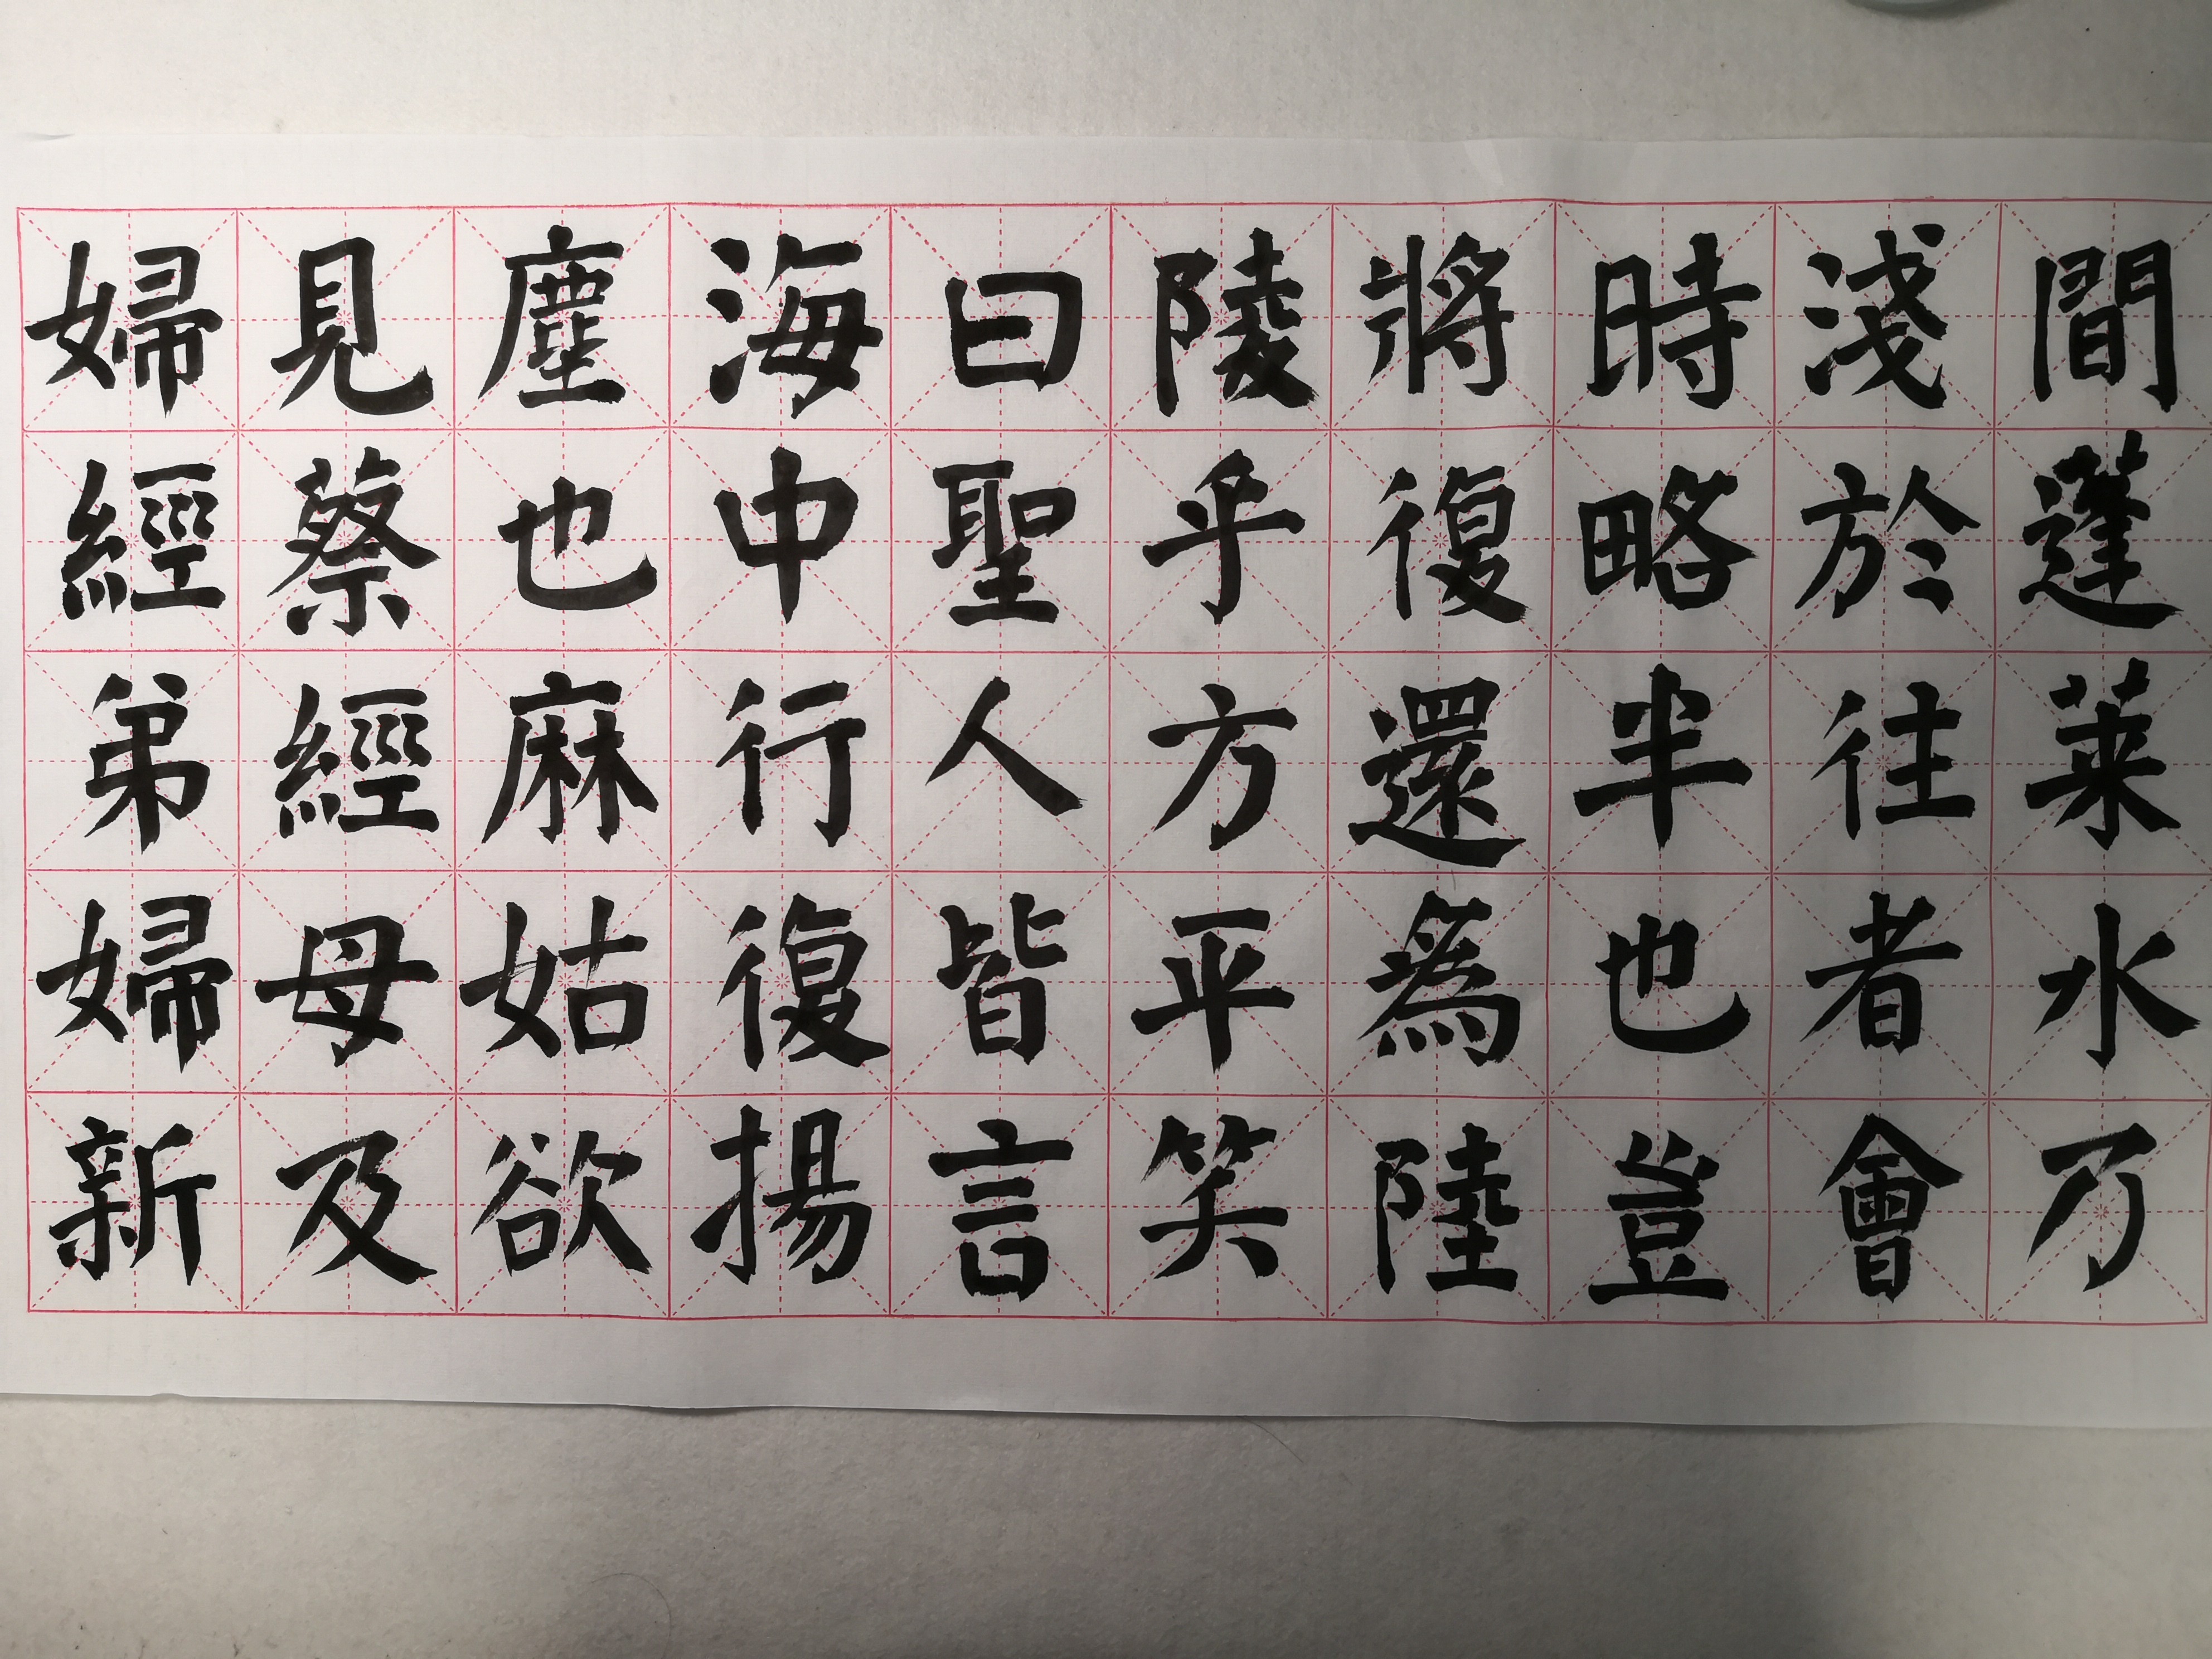 間蓬萊水乃
淺於往者會
時略半也豈
將復還為陸
陵乎方平笑
曰聖人皆言
海中行復揚
塵也麻姑欲
見蔡經母及
婦經弟婦新